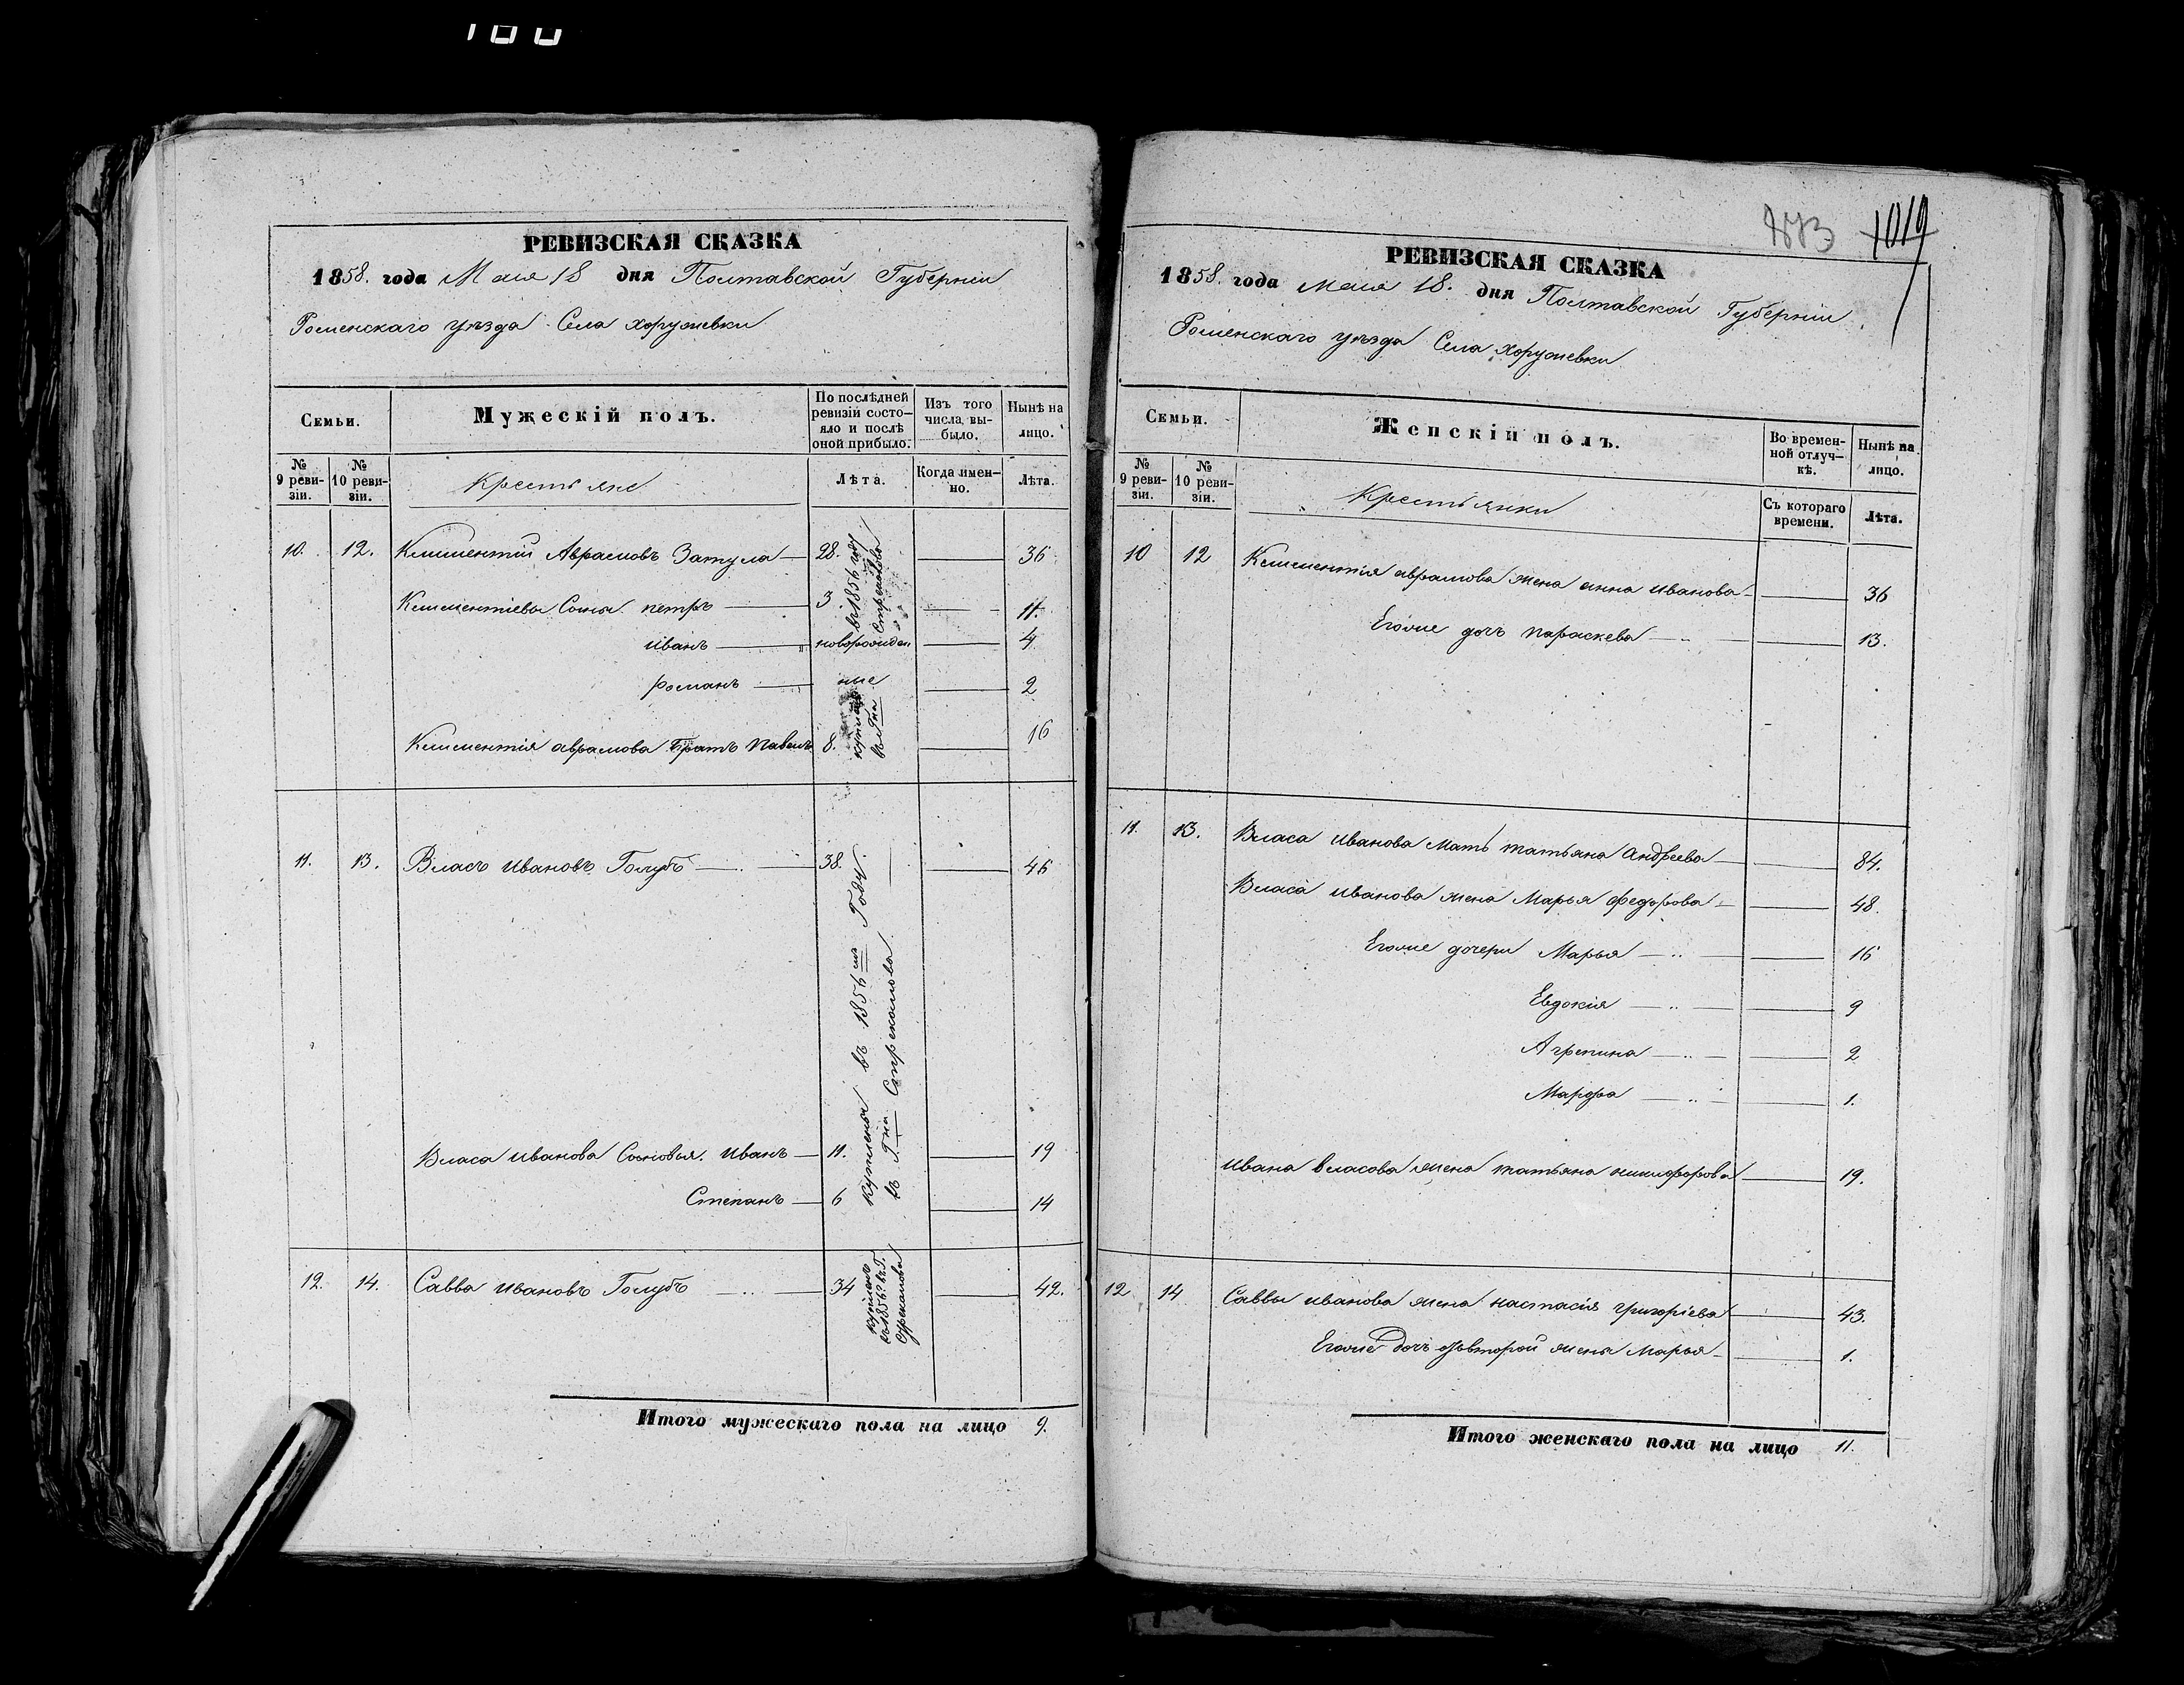 РЕВИЗСКАЯ СКАЗКА
1858. года Мая 18 дня Полтавской Губерніи
Роменскаго уѣзда Села Хоружевки
Семьи.
Мужескій полъ.
По послѣдней ревизіи состо-яло и послѣ оной прибыло.
Изъ того числа вы-было.
Нынѣ на лицо.
№ 9 реви-зіи.
№ 10 реви-зіи.
Крестьяне
Лѣта.
Когда имен-но.
Лѣта.
10. 12. Климентій Аврамовъ Затула 28. 36
Климентіевы Сыны петръ 3. 11.
иванъ новорожден 4
романъ ные 2
Климентія аврамова братъ павелъ 8. 16
11. 13. Власъ ивановъ Голубъ 38. 46
Куплены въ 1856 мъ Году.
въ Г на Стрекалова
Власа иванова Сыновья. иванъ 11. 19
Степанъ 6 14
12. 14. Савва ивановъ Голубъ 34 42.
купленъ
въ 1856 г. въ Г.
Стрекалова
Итого мужескаго пола на лицо 9.
1019
РЕВИЗСКАЯ СКАЗКА
1858. года мая 18. дня Полтавской Губерніи
Роменскаго уѣзда Села хоружевки
Семьи.
Женскій полъ.
Во времен-ной отлуч-кѣ.
Нынѣ на лицо.
№ 9 реви-зіи.
№ 10 реви-зіи.
Крестьянки
Съ котораго времени.
Лѣта.
10 12 Климентія аврамова жена анна иванова 36
Егоже дочь параскева 13.
11. 13. Власа иванова мать татьяна Андреева 84.
Власа иванова жена Марья федорова 48.
Егоже дочери Марья 16
Евдокія 9
Агрепина 2
Марфа 1.
ивана власова жена татьяна никифорова 19.
12 14 Саввы иванова жена настасія григоріева 43.
Егоже дочь отъ второй жены Марья 1.
Итого женскаго пола на лицо 11.